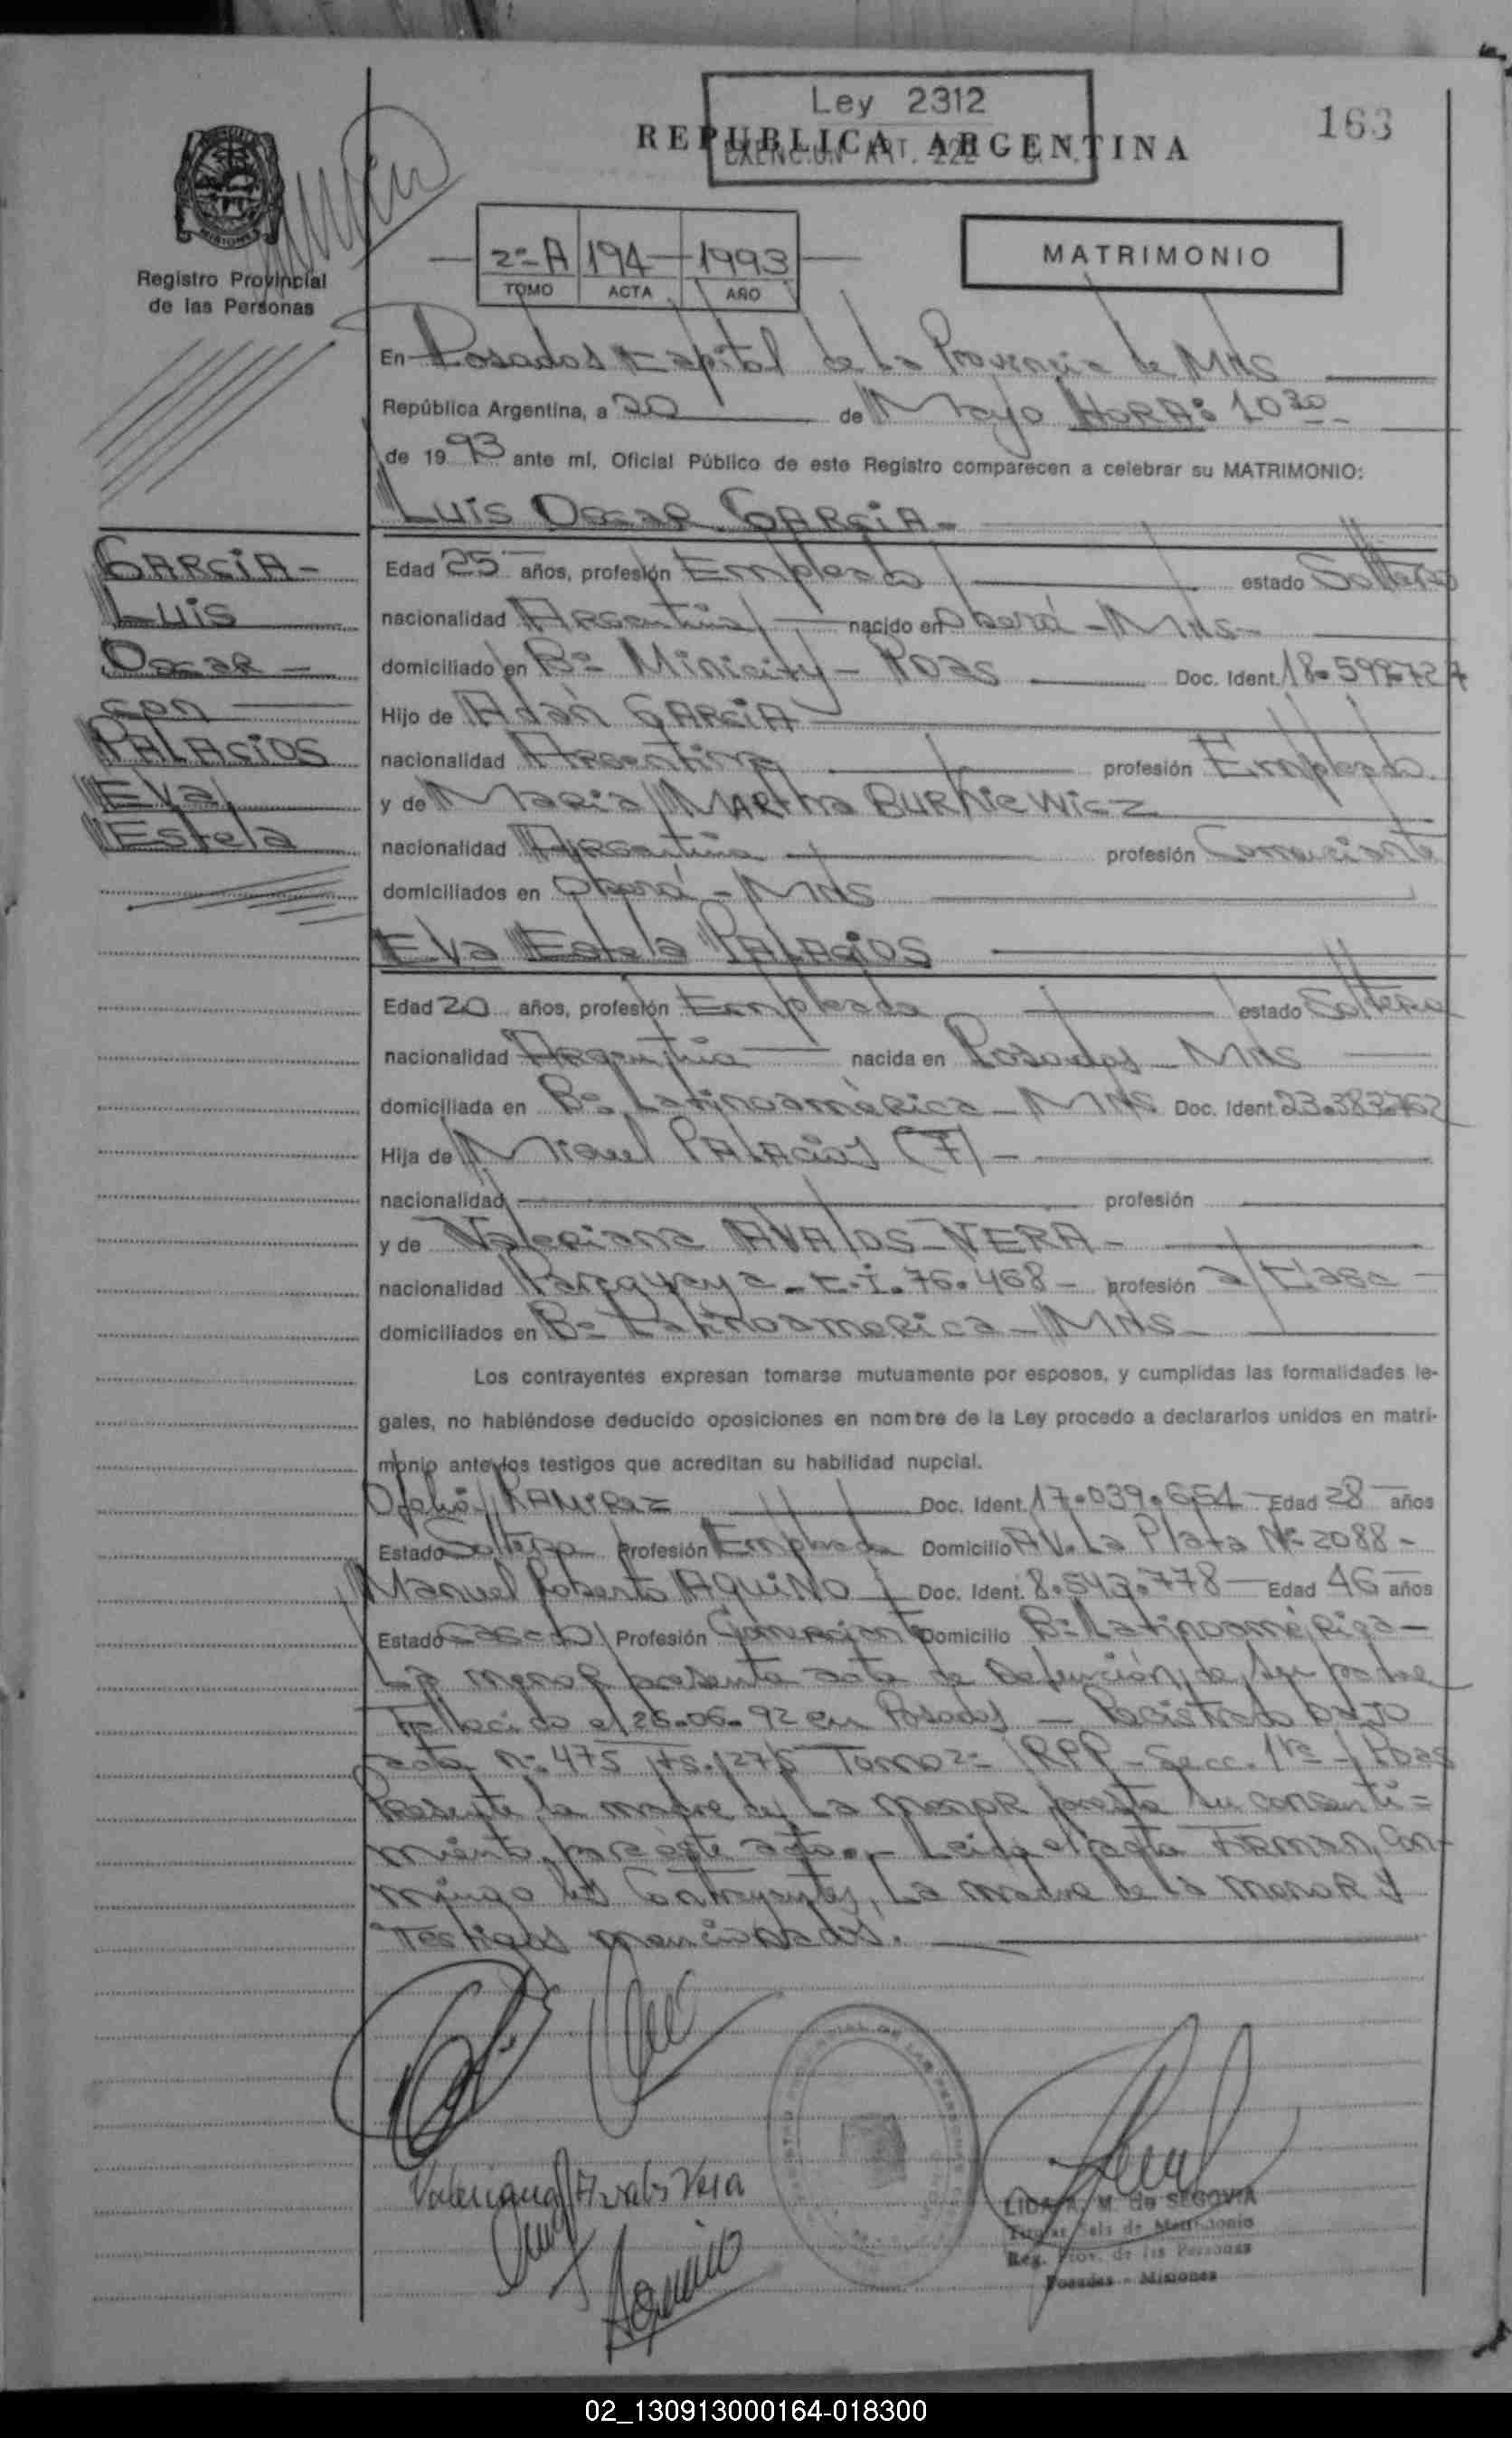 Ley 2312
REPUBLICA ARGENTINA
163
EXENCION ART. 222
MISIONES
Registro Provincial
de las Personas
2º A 194 1993
TOMO ACTA AÑO
MATRIMONIO
En Posadas Capital de la Provincia de Mnes
República Argentina, a 20 de Mayo HORA: 10 30
de 19 93 ante mí, Oficial Público de este Registro comparecen a celebrar su MATRIMONIO:
Luis Oscar GARCIA
GARCIA-
Luis
Oscar-
con
PALACIOS
Eva
Estela
Edad 25 años, profesión Empleado estado Soltero
nacionalidad Argentina nacido en Oberá - Mnes-
domiciliado en Bº Minicity - Pdas Doc. Ident. 18.599.727
Hijo de Adán GARCIA
nacionalidad Argentina profesión Empleado
y de Maria Martha BURKIEWICZ
nacionalidad Argentina profesión Comerciante
domiciliados en Oberá - Mnes
Eva Estela PALACIOS
Edad 20 años, profesión Empleada estado Soltera
nacionalidad Argentina nacida en Posadas - Mnes
domiciliada en Bº Latinoamérica - Mnes Doc. Ident. 23.383.762
Hija de Miguel PALACIOS (F) -
nacionalidad profesión
y de Valeriana AVALOS-VERA-
nacionalidad Paraguaya - C.I. 76.468 - profesión a/casa -
domiciliados en Bº Latinoamerica - Mnes-
Los contrayentes expresan tomarse mutuamente por esposos, y cumplidas las formalidades le-
gales, no habiéndose deducido oposiciones en nombre de la Ley procedo a declararlos unidos en matri-
monio ante los testigos que acreditan su habilidad nupcial.
RAMIREZ Doc. Ident. 17.039.651 Edad 28 años
Estado Soltera Profesión Empleada Domicilio AV. La Plata Nº 2088 -
Manuel Roberto AQUINO Doc. Ident. 8.543.778 Edad 46 años
Estado casado Profesión Comerciante Domicilio Bº Latinoamérica -
La menor presenta acta de defunción de su padre
Fallecido el 25.06.92 en Posadas - Registrado bajo
acta Nº 475 Tomo 2º RPP - Secc. 1ra - Pdas
Presente la madre de la menor presta su consenti=
miento para éste acto.- Leida el acta Firman con-
migo los Contrayentes, La madre de la menor y
Testigos mencionados.
Valeriana Avalos Vera
Aquino
LIDA A. M. de SEGOVIA
Titular Sala de Matrimonio
Reg. Prov. de las Personas
Posadas - Misiones
02_130913000164-018300